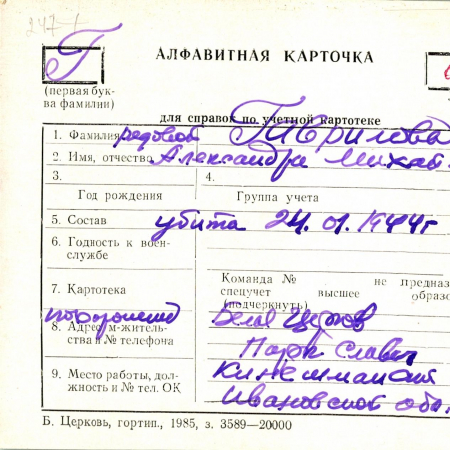 247-1
Г
АЛФАВИТНАЯ КАРТОЧКА
(первая бук-
ва фамилии)
для справок по учетной картотеке
1. Фамилия рядовой Гаврилова
2. Имя, отчество Александра Михай
3. 4.
Год рождения Группа учета
5. Состав убита 24. 01. 1944г
6. Годность к воен-
службе
Команда № не предназ
7. Картотека спецучет высшее образо
(подчеркнуть)
похоронена Белая Церковь
8. Адрес м-житель-
ства и № телефона Парк Славы
9. Место работы, дол-
жность и № тел. ОК
Ивановской обл.
Б. Церковь, гортип., 1985, з. 3589—20000